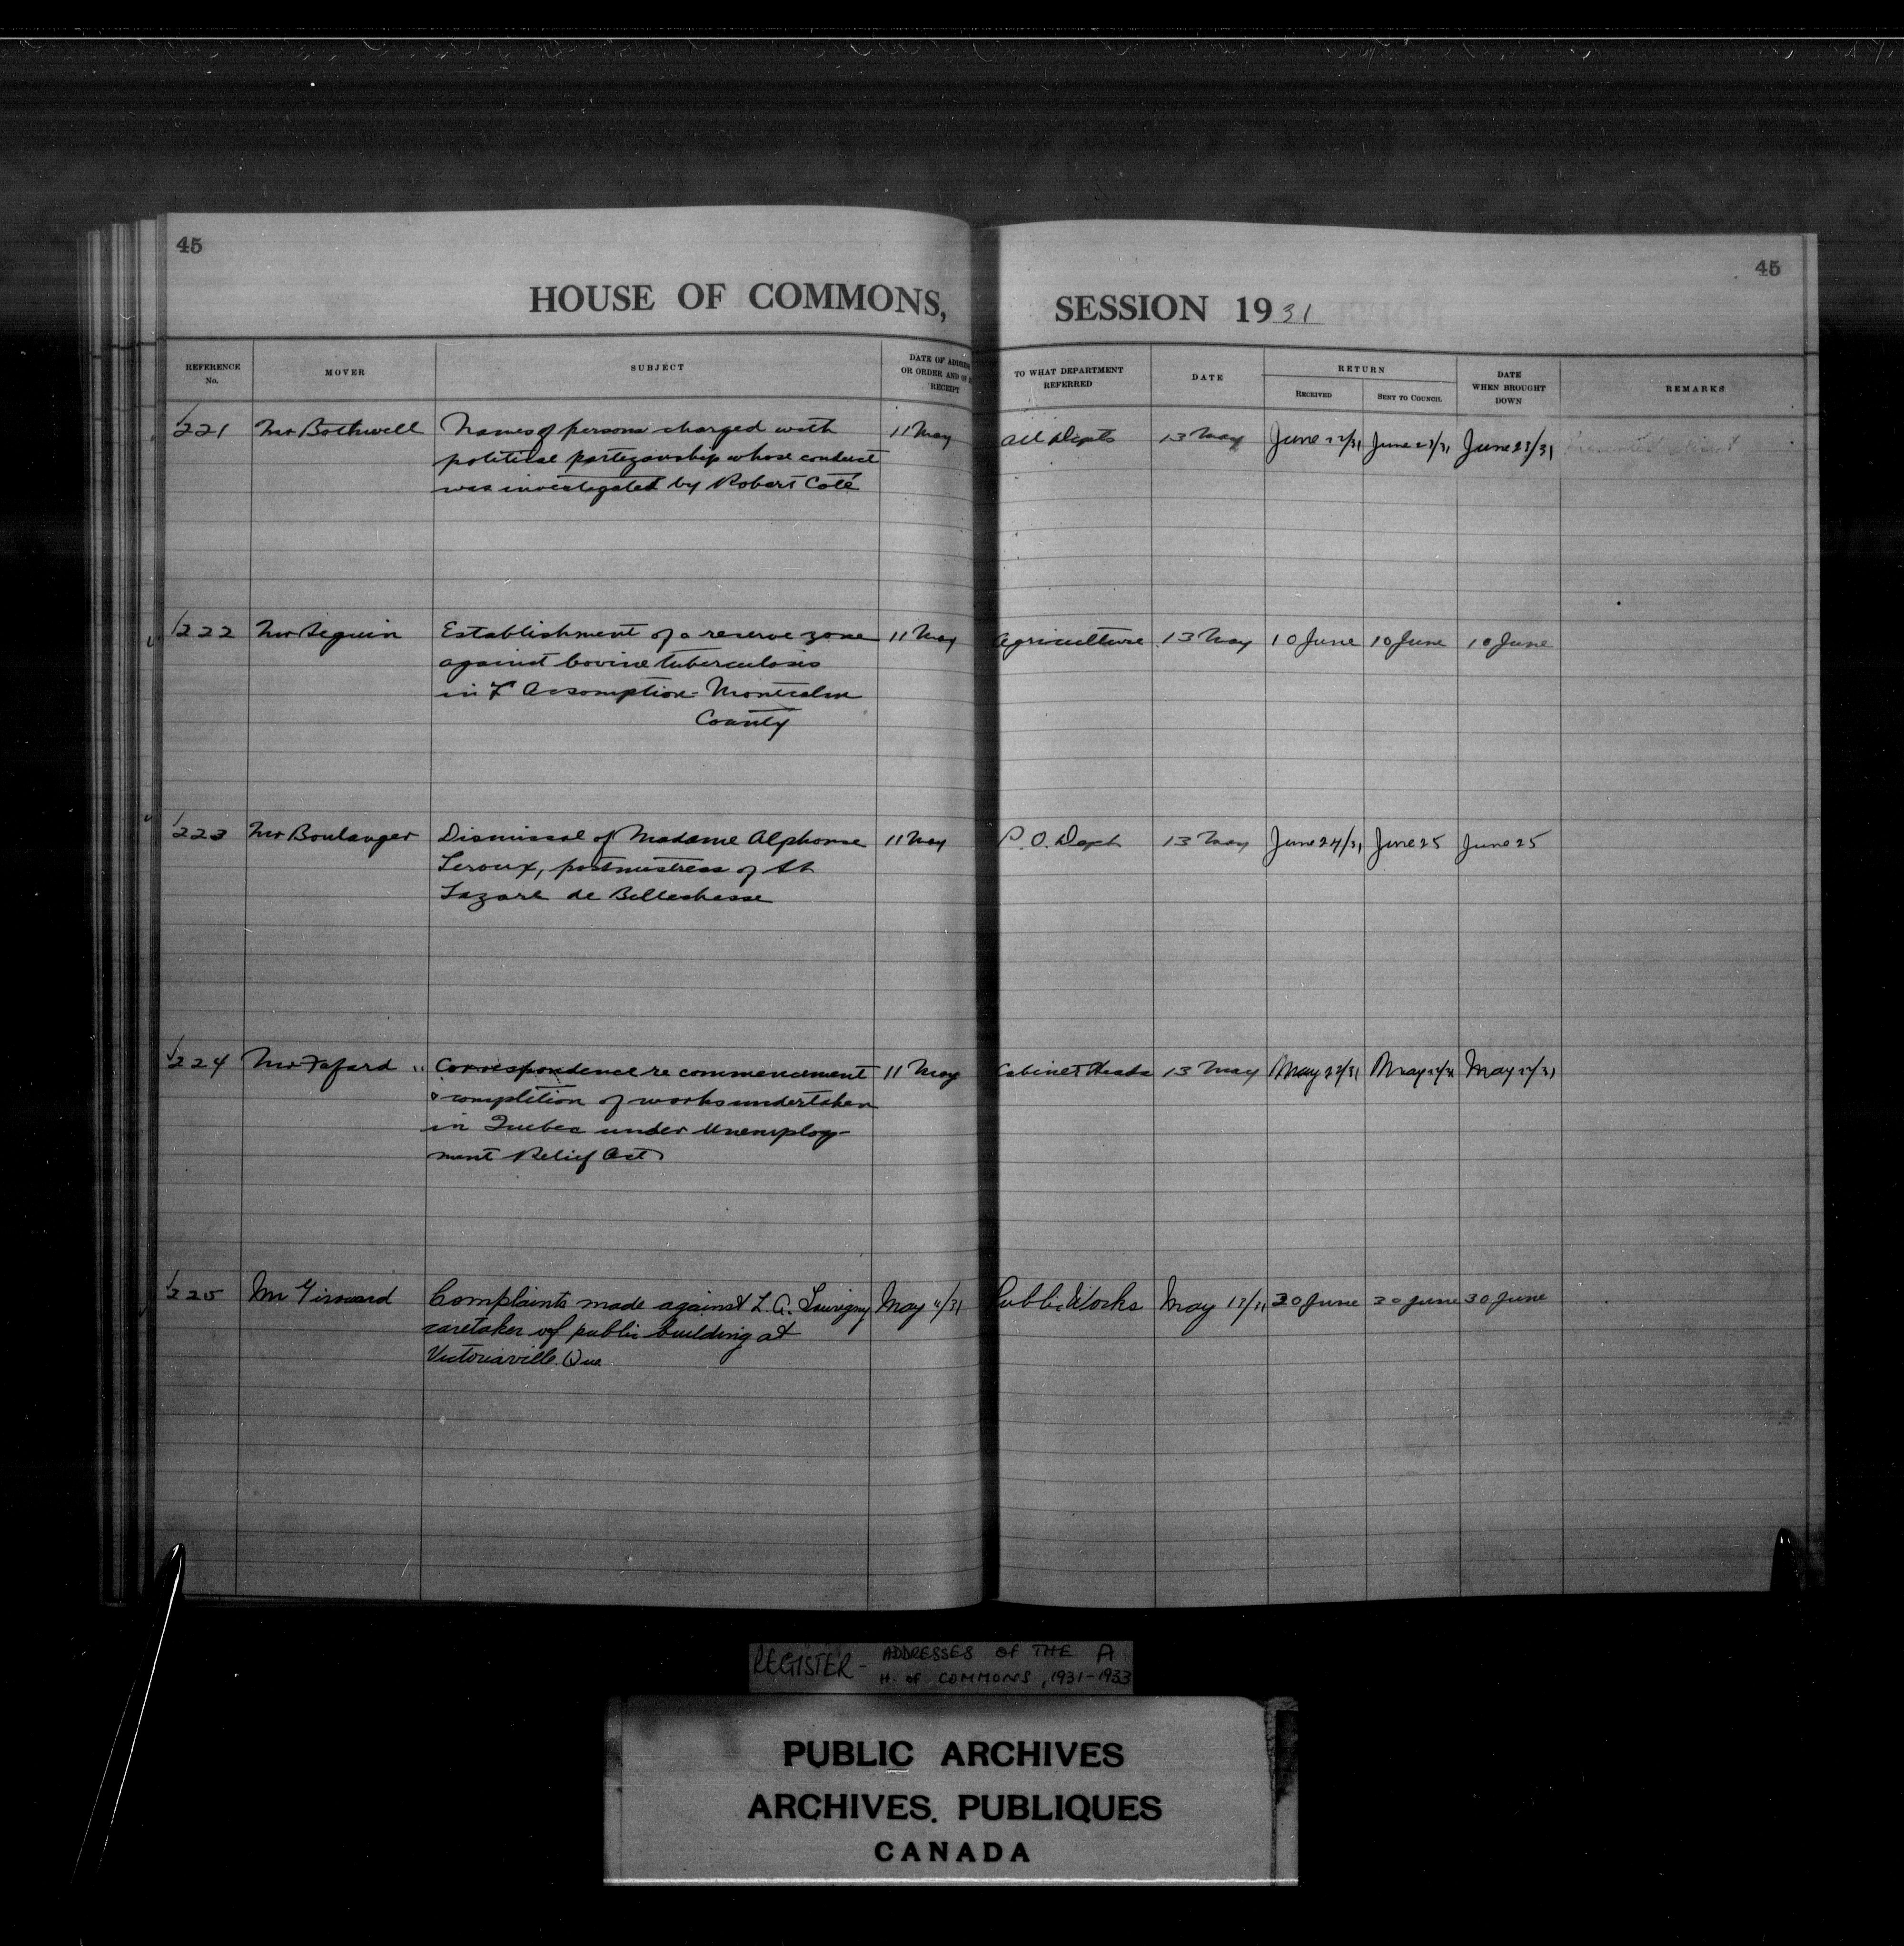 45
45
HOUSE OF COMMONS,
SESSION 1931
REFERENCE No.
MOVER
SUBJECT
DATE OF ADDRESS OR ORDER AND OF RECEIPT
TO WHAT DEPARTMENT REFERRED
DATE
RETURN
RECEIVED
SENT TO COUNCIL
DATE WHEN BROUGHT DOWN
REMARKS
221 Mr Bothwell Names of persons charged with 11 May All Depts 13 May June 22/31 June 23/31 June 23/31
political partezanship whose conduct
was investigated by Robert Coté
222 Mr Seguin Establishment of a reserve zone 11 May Agriculture 13 May 10 June 10 June 10 June
against bovine tuberculosis
in L'Assomption-Montcalm
County
223 Mr Boulanger Dismissal of Madame Alphonse 11 May P.O. Dept 13 May June 24/31 June 25 June 25
Leroux, postmistress of St
Lazare de Bellechasse
224 Mr Fafard Correspondence re commencement 11 May Cabinet 13 May May 22/31 May May
& completion of works undertaken
in Quebec under Unemploy-
ment Relief Act
225 Mr Girouard Complaints made against L. A. May 11/31 Public Works May 13/31 30 June 30 June 30 June
caretaker of public building at
Victoriaville Que
REGISTER - ADDRESSES OF THE A
H. OF COMMONS, 1931-1933
PUBLIC ARCHIVES
ARCHIVES PUBLIQUES
CANADA